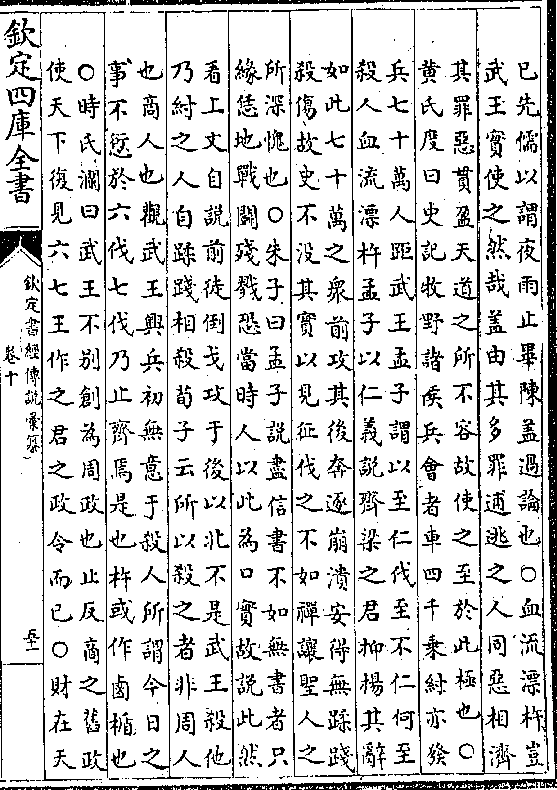 已先儒以謂夜雨止畢陳蓋過論也○血流漂杵豈
武王實使之然哉蓋由其多罪逋逃之人同惡相濟
其罪惡貫盈天道之所不容故使之至於此極也○
黄氏度曰史記牧野諸侯兵會者車四千乗紂亦發
兵七十萬人距武王孟子謂以至仁伐至不仁何至
殺人血流漂杵孟子以仁義説齊梁之君抑揚其辭
如此七十萬之衆前攻其後奔逐崩潰安得無蹂踐
殺傷故史不没其實以見征伐之不如禪讓聖人之
所深愧也○朱子曰孟子説盡信書不如無書者只
緣恁地戰鬭殘戮恐當時人以此為口實故説此然
看上文自説前徒倒戈攻于後以北不是武王殺他
乃紂之人自蹂踐相殺荀子云所以殺之者非周人
也商人也觀武王興兵初無意于殺人所謂今日之
事不愆於六伐七伐乃止齊焉是也杵或作鹵楯也
○時氏瀾曰武王不别創為周政也止反商之舊政
使天下復見六七王作之君之政令而已○財在天
欽定四庫全書
欽定書經傳說彙纂
卷十
至